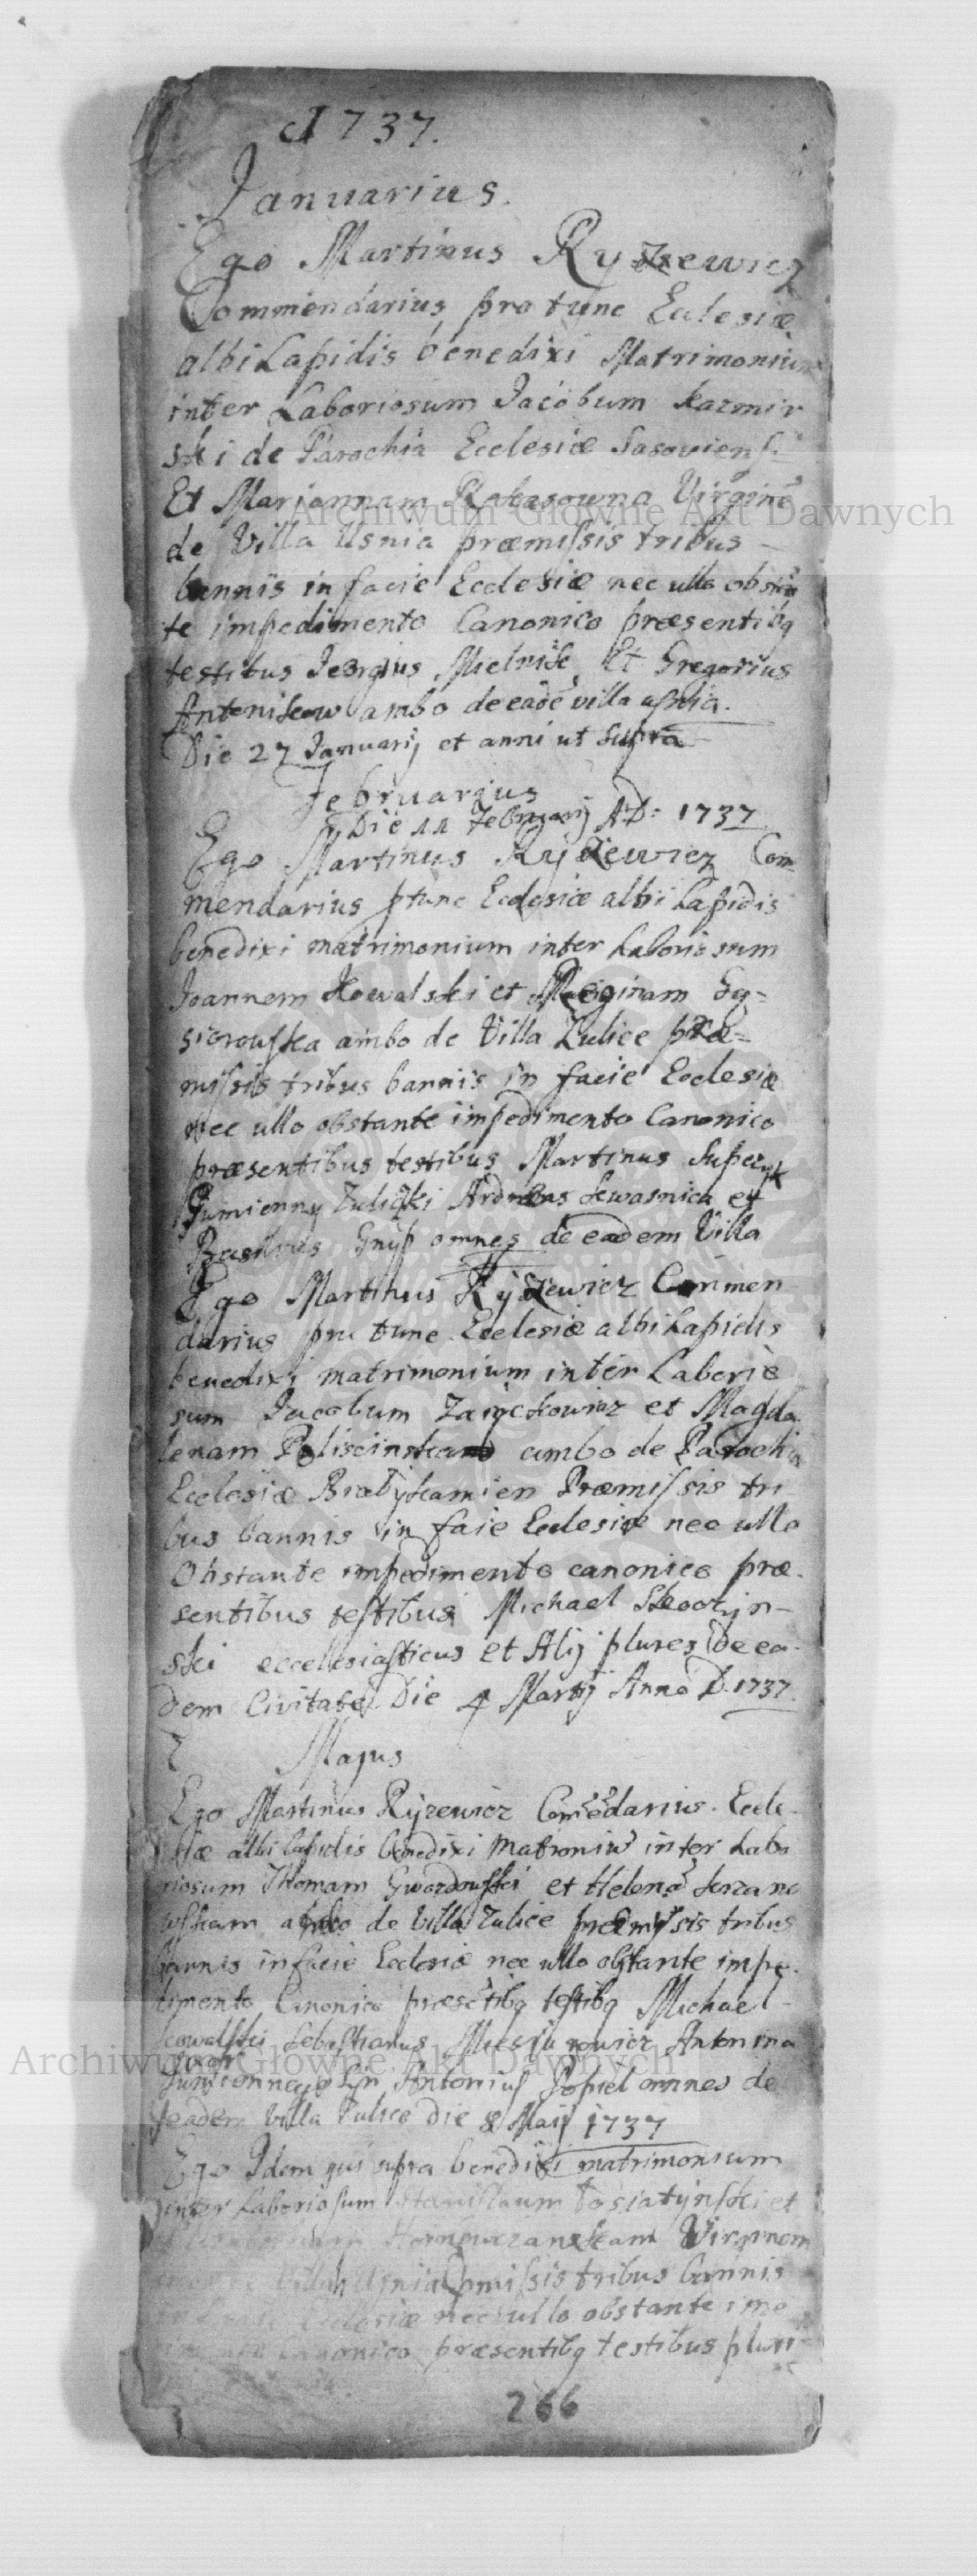 1737.
Januarius.
Ego Martinus Ryzewicz
Commendarius pro tunc Ecclesiæ
albi Lapidis benedixi Matrimonium
inter Laboriosum Jacobum Kazmir
ski de Parochia Ecclesiæ Sasoviensi
Et Mariannam Virginē
de Villa Usnia præmissis tribus
bannis in facie Ecclesiæ nec ullo obstan
te impedimento Canonico præsentibq
testibus Georgius Mielnik Et Gregorius
Antonikow ambo de eadē villa usnia.
Die 27 Januarij et anni ut supra
Februarius
Die 11 Februarij AD: 1737
Ego Martinus Ryzewicz Com
mendarius ptunc Ecclesiæ albi Lapidis
benedixi matrimonium inter Laboriosum
Joannem Kowalski et Reginam
ambo de Villa Zulice præ=
missis tribus bannis in facie Ecclesiæ
nec ullo obstante impedimento Canonico
præsentibus testibus Martinus
Gumienny Zulicki Andreas Kwasnica et
Basilius Gnyp omnes de eadem Villa
Ego Martinus Ryzewicz Commen
darius pro tunc Ecclesiæ albi Lapidis
benedixi matrimonium inter Laborio
sum Jacobum Zaiączkowicz et Magda
lenam ambo de Parochia
Ecclesiæ Białykamien Præmissis tri
bus bannis in facie Ecclesiæ nec ullo
Obstante impedimento canonico præ
sentibus testibus Michael
ski ecclesiasticus et Alij plures De ea
dem Civitate Die 4 Martij Anno D. 1737.
Majus
Ego Martinus Ryzewicz Comēdarius Eccle
siæ albi lapidis benedixi Matroniū inter Labo
riosum Thomam Gwozdowski et Helenā
ambo de Villa Zulice præmissis tribus
bannis in facie Ecclesiæ nec ullo obstante impe
dimento Canonico præsētibq testibq Michael
Kowalski Sebastianus Antonina
Antonius Popiel omnes de
eadem Villa Zulice Die 8 Maij 1737
Ego Idem qui supra benedixi matrimonium
inter Laboriosum Stanislaum et
Virginem
Usnia pmissis tribus bannis
Ecclesiæ nec ullo obstante impe
canonico præsentibq testibus pluri
266
Archiwum Główne Akt Dawnych
Archiwum Główne Akt Dawnych